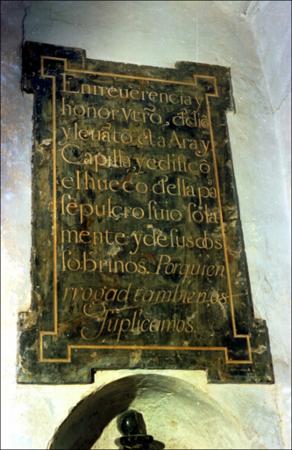 En reuerencia y
honor vr̃o, dedi
y leuãto esta Ara y
Capilla y edificò
el hueco della pa
sepulcro suio sola
mente y de sus dos
sobrinos. Por quien
rrogad tambien os
Suplicamos.